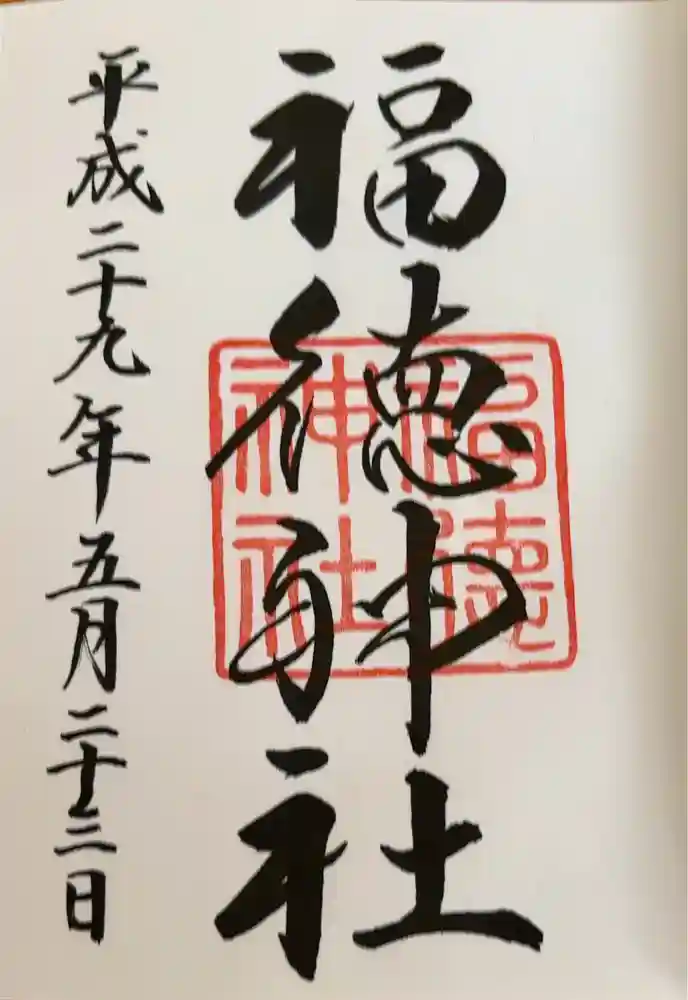 福徳神社
福徳
神社
平成二十九年五月二十三日